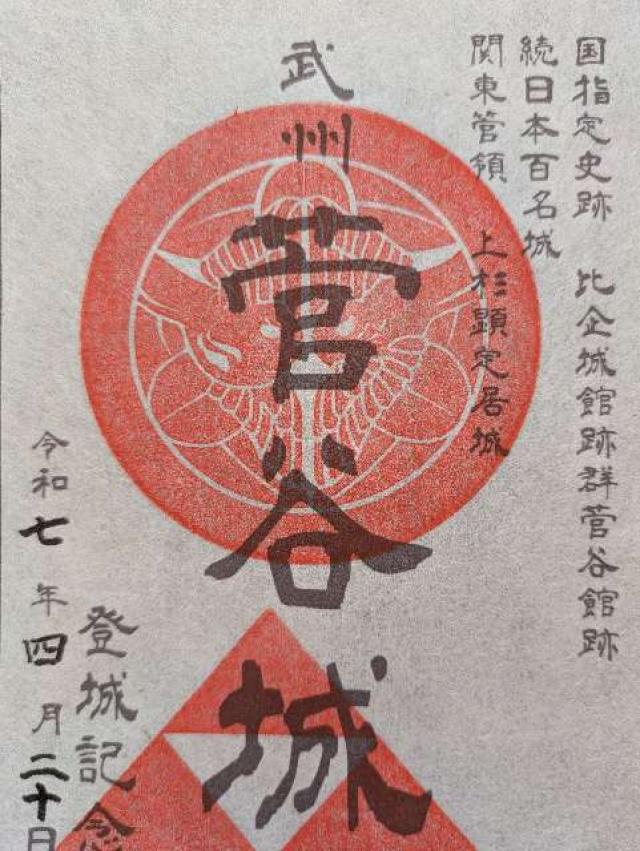 国指定史跡 比企城館跡群菅谷館跡
続日本百名城
関東管領 上杉顕定居城
武州菅谷城
登城記念
令和七年四月二十日